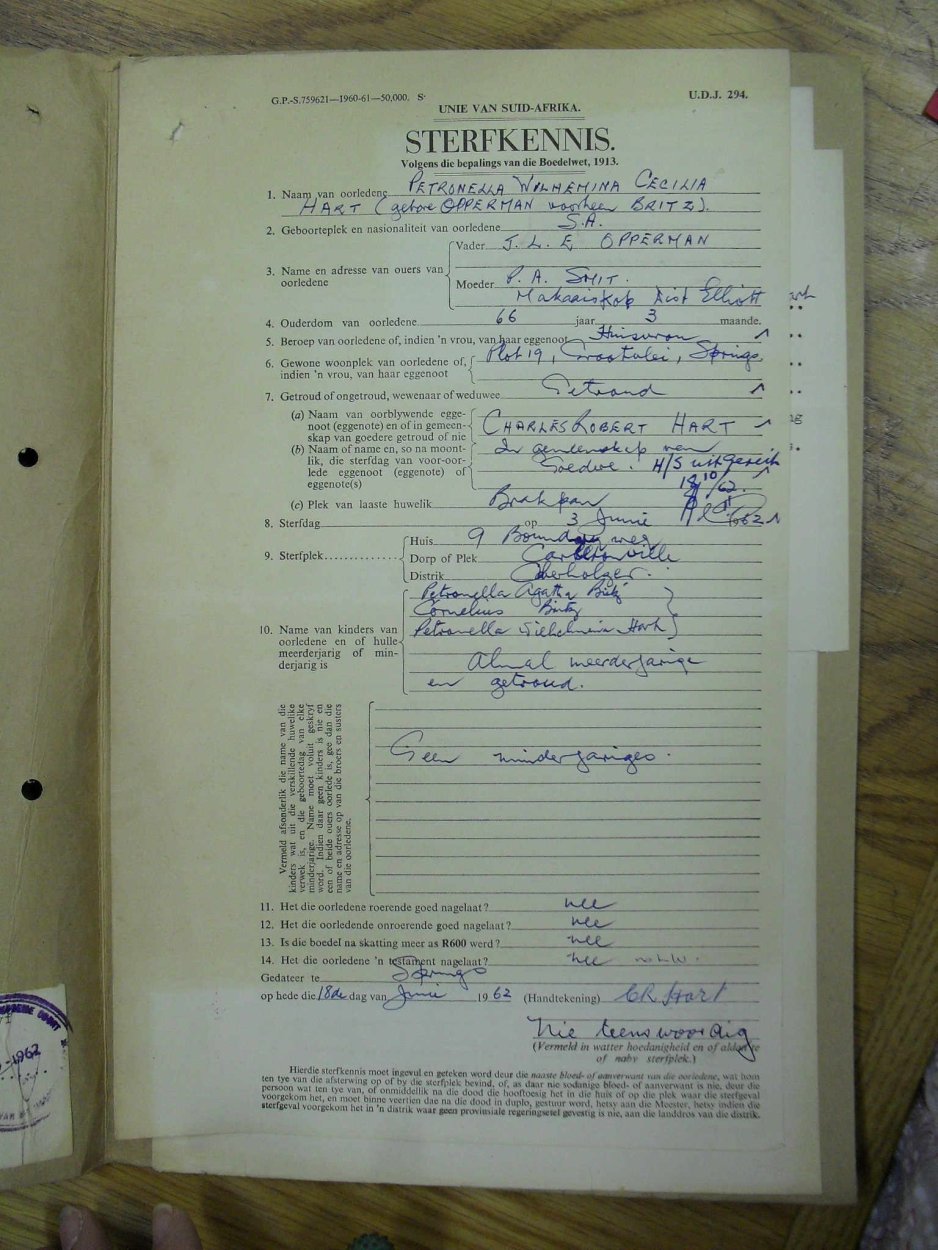 G.P.-S.759621—1960-61—50,000. S·
U.D.J. 294.
UNIE VAN SUID-AFRIKA.
STERFKENNIS.
Volgens die bepalings van die Boedelwet, 1913.
1. Naam van oorledene PETRONELLA WILHEMINA CECILIA
HART (gebore OPPERMAN voorheen BRITZ).
2. Geboorteplek en nasionaliteit van oorledene S.A.
3. Name en adresse van ouers van oorledene
Vader J. L. E. OPPERMAN
Moeder P. A. SMIT.
Dist Elliott
4. Ouderdom van oorledene 66 jaar 3 maande.
5. Beroep van oorledene of, indien 'n vrou, van haar eggenoot Huisvrou
6. Gewone woonplek van oorledene of, indien 'n vrou, van haar eggenoot
Plot 19, Grootvlei, Springs
7. Getroud of ongetroud, wewenaar of weduwee Getroud
(a) Naam van oorblywende eggenoot (eggenote) en of in gemeenskap van goedere getroud of nie
CHARLES ROBERT HART
(b) Naam of name en, so na moontlik, die sterfdag van voor-oorlede eggenoot (eggenote) of eggenote(s)
In gemeenskap van
Goedere. H/S uitgereik
18/10/62.
(c) Plek van laaste huwelik Brakpan
8. Sterfdag op 3 Junie 1962
9. Sterfplek
Huis 9 Boundary weg
Dorp of Plek Carletonville
Distrik Oberholzer.
10. Name van kinders van oorledene en of hulle meerderjarig of minderjarig is
Petronella Agatha Britz
Cornelius Britz
Petronella Wilhelmina Hart
Almal meerderjarige
en getroud.
Vermeld afsonderlik die name van die
kinders wat uit die verskillende huwelike
verwek is, en die geboortedag van elke
minderjarige. Name moet voluit geskryf
word. Indien daar geen kinders is nie en
een of beide ouers oorlede is, gee dan die
name en adresse op van die broers en susters
van die oorledene.
Geen minderjariges.
11. Het die oorledene roerende goed nagelaat? nee
12. Het die oorledende onroerende goed nagelaat? nee
13. Is die boedel na skatting meer as R600 werd? nee
14. Het die oorledene 'n testament nagelaat? nee
Gedateer te Springs
op hede die 18de dag van Junie 1962 (Handtekening) CR Hart
Nie teenswoordig
(Vermeld in watter hoedanigheid en of aldan te
of naby sterfplek.)
Hierdie sterfkennis moet ingevul en geteken word deur die naaste bloed- of aanverwant van die oorledene, wat hom
ten tye van die afsterwing op of by die sterfplek bevind, of, as daar nie sodanige bloed- of aanverwant is nie, deur die
persoon wat ten tye van, of onmiddellik na die dood die hooftoesig het in die huis of op die plek waar die sterfgeval
voorgekom het, en moet binne veertien dae na die dood in duplo, gestuur word, hetsy aan die Meester, hetsy indien die
sterfgeval voorgekom het in 'n distrik waar geen provinsiale regeringsetel gevestig is nie, aan die landdros van die distrik.
-1962